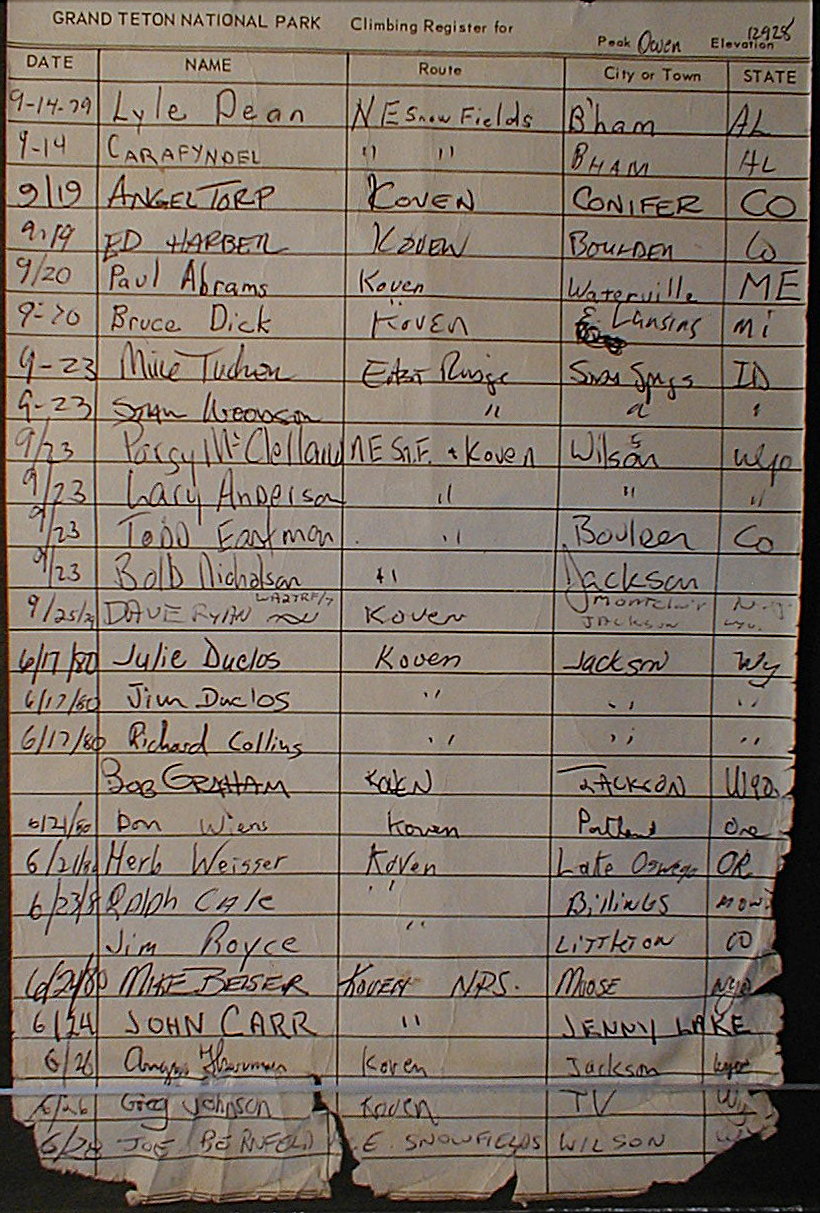 GRAND TETON NATIONAL PARK Climbing Register for Peak Owen Elevation 12928
DATE NAME Route City or Town STATE
9-14-79 Lyle Dean NE Snow Fields B'ham AL
9-14 " " BHAM AL
9/19 ANGEL TORP KOVEN CONIFER CO
9/19 ED KOVEN Co
9/20 Paul Abrams Koven Waterville ME
9-20 Bruce Dick Koven E. Lansing mi
9-23 Mike East Ridge Springs ID
9-23 "
9/23 McClelland NE Sn.F. + Koven Wilson Wyo
9/23 Lacy Anderson " " "
9/23 Todd Eastman " Boulder Co
9/23 Bolb Nicholsan " Jackson
9/25/79 DAVE RYAN Koven Montclair N.J.
JACKSON Wyo.
6/17/80 Julie Duclos Koven Jackson Wy
6/17/80 Jim Duclos " " "
6/17/80 Richard Collins " " "
BOB GRAHAM KOVEN JACKSON Wyo.
6/21/80 Don Wiens Koven Portland Ore
6/21/80 Herb Weisser Koven Lake Oswego OR
6/23/8 Ralph Cale " Billings Mont
Jim Royce " LITTLETON CO
MIKE BEISER KOVEN NPS. MOOSE Wyo
6/24 JOHN CARR " JENNY LAKE
6/26 Koven Jackson Wyo
6/26 Greg Johnson Koven TV Wy
6/28 JOE BERNFELD E. SNOWFIELDS WILSON